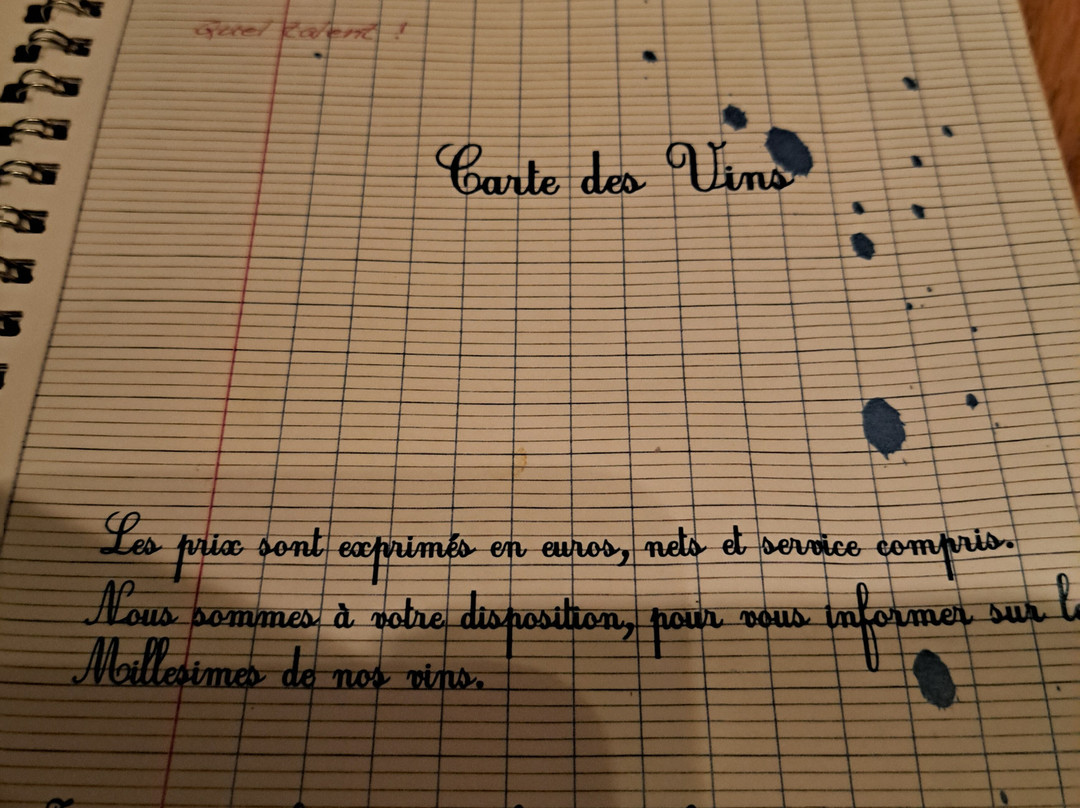 Quel talent !
Carte des Vins
Les prix sont exprimés en euros, nets et service compris.
Nous sommes à votre disposition, pour vous informer sur
Millesimes de nos vins.